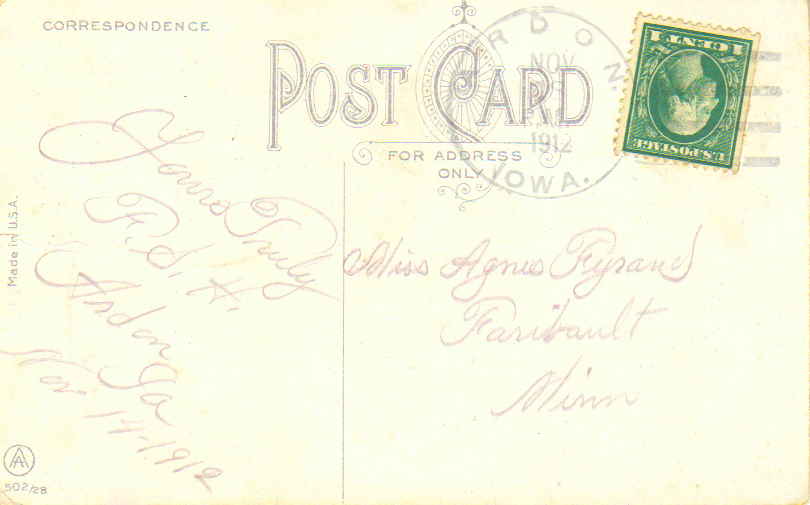 CORRESPONDENCE
POST CARD
FOR ADDRESS
ONLY
RDON.
NOV
1912
IOWA.
1 CENT 1
U.S. POSTAGE
Yours Truly
F. S. H.
Ardon
Ia
Nov 14-1912
Miss Agnes Fyrand
Faribault
Minn
Made in U.S.A.
AA
502/28